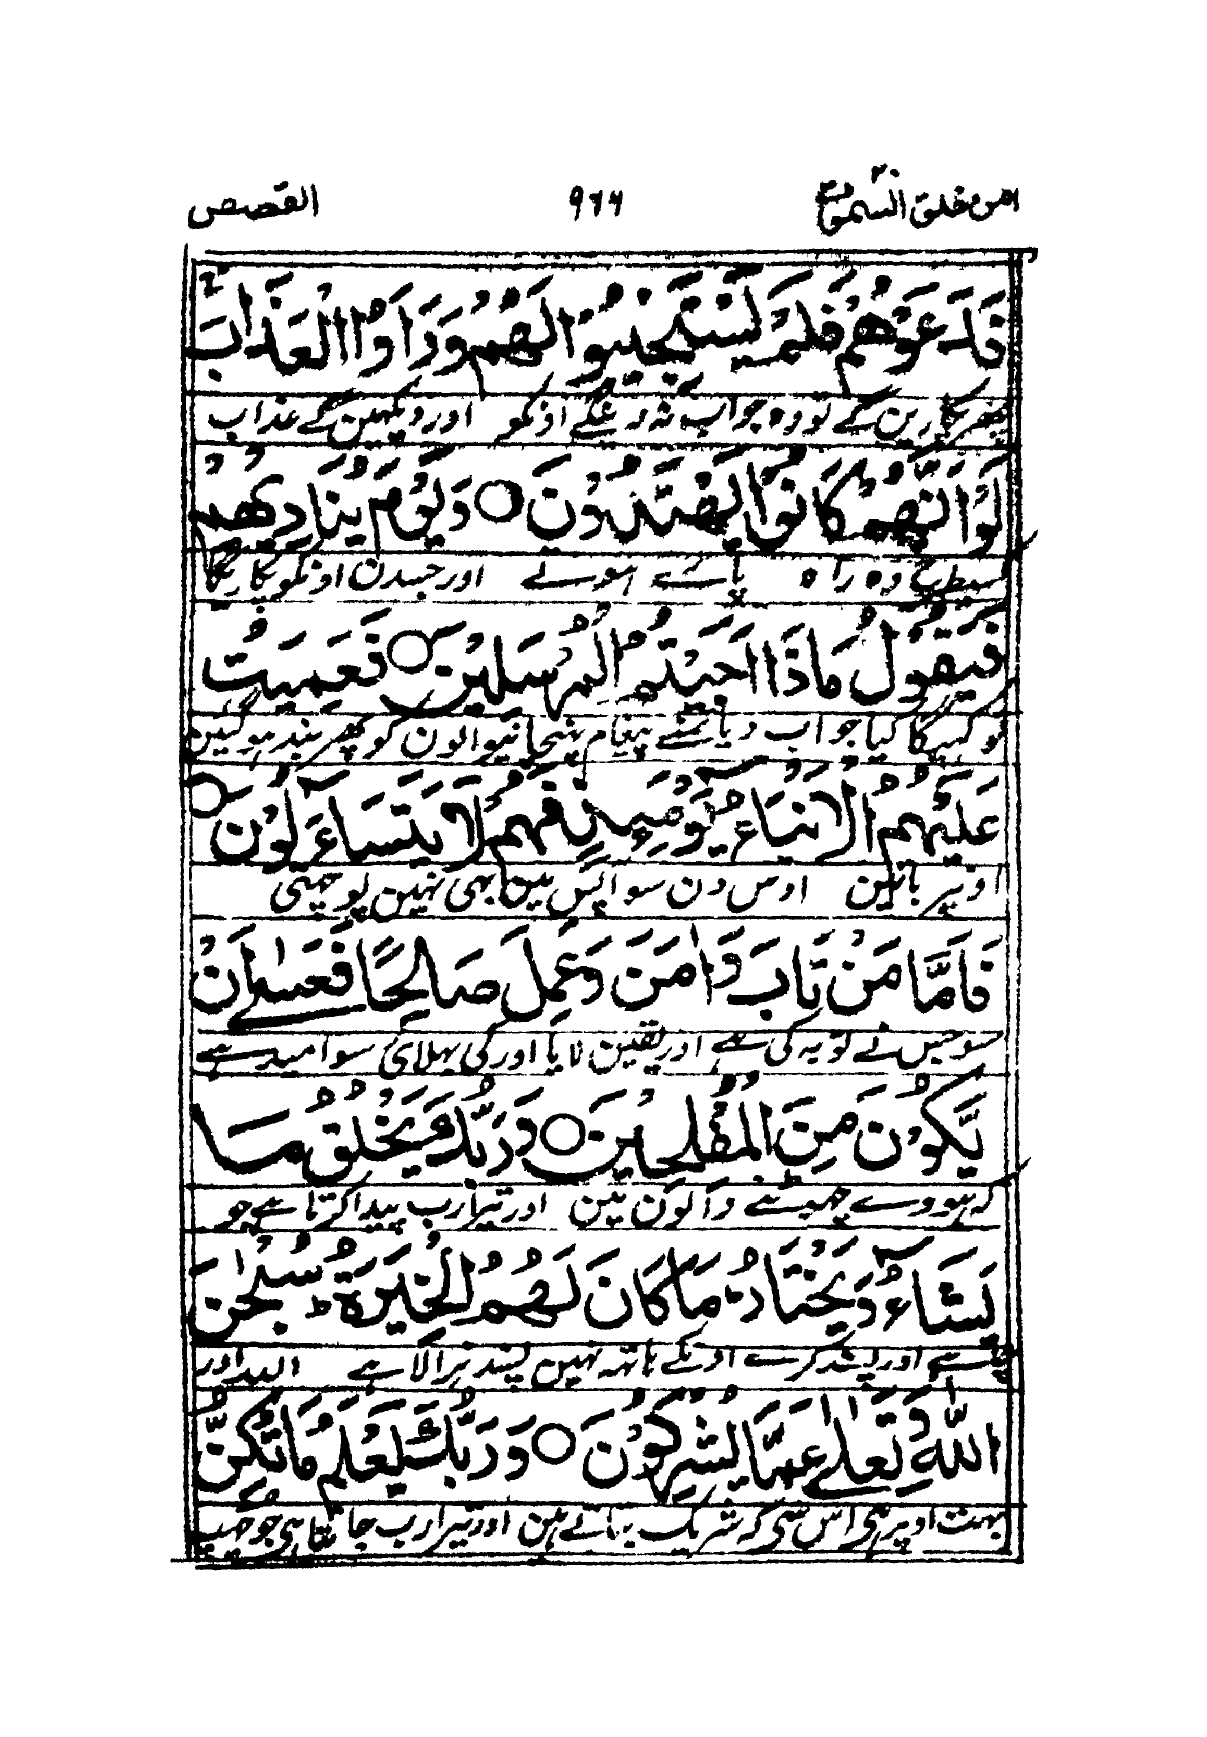 امن خلق السمٰوٰت ٩٦٦ القصص
فَدَعَوْهُمْ فَلَمْ يَسْتَجِيْبُوْا لَهُمْ وَرَاَوُا الْعَذَابَ
پھر پکارین گے تو وہ جواب نہ دینگے اونکو اور دیکھین گے عذاب
لَوْ اَنَّهُمْ كَانُوْا يَهْتَدُوْنَ ○ وَيَوْمَ يُنَادِيْهِمْ
کسیطرح وہ راہ پائے ہوتے اور جسدن اونکو پکاریگا
فَيَقُوْلُ مَاذَا اَجَبْتُمُ الْمُرْسَلِيْنَ ○ فَعَمِيَتْ
تو کہیگا کیا جواب دیا تمنے پیغام پہنچانیوالون کو پھر بند ہوگئین
عَلَيْهِمُ الْاَنْۢبَآءُ يَوْمَىِٕذٍ فَهُمْ لَا يَتَسَآءَلُوْنَ ○
اونپر باتین اوس دن سو آپس مین بھی نہین پوچھتے
فَاَمَّا مَنْ تَابَ وَاٰمَنَ وَعَمِلَ صَالِحًا فَعَسٰٓى اَنْ
سو جس نے توبہ کی ہے اور یقین لایا اور کی بھلائی سو امید ہے
يَّكُوْنَ مِنَ الْمُفْلِحِيْنَ ○ وَرَبُّكَ يَخْلُقُ مَا
کہ ہووے چھوٹنے والون مین اور تیرا رب پیدا کرتا ہے جو
يَشَآءُ وَيَخْتَارُ ؕ مَا كَانَ لَهُمُ الْخِيَرَةُ ؕ سُبْحٰنَ
چاہے اور پسند کرے اونکے ہاتھہ نہین پسند نرالا ہے اللہ اور
اللّٰهِ وَتَعٰلٰى عَمَّا يُشْرِكُوْنَ ○ وَرَبُّكَ يَعْلَمُ مَا تُكِنُّ
بہت اوپر ہی اس سی کہ شریک بتاتے ہین اور تیرا رب جانتا ہی جو چھپ